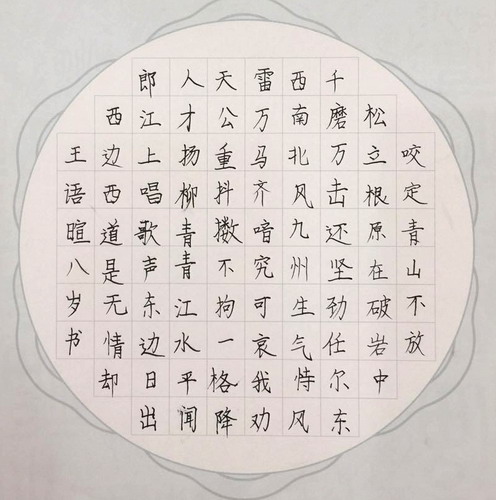 咬定青山不放
松立根原在破岩中
千磨万击还坚劲任尔东
西南北风九州生气恃风
雷万马齐喑究可哀我劝
天公重抖擞不拘一格降
人才扬柳青青江水平闻
郎江上唱歌声东边日出
西边西道是无情却
王语暄八岁书